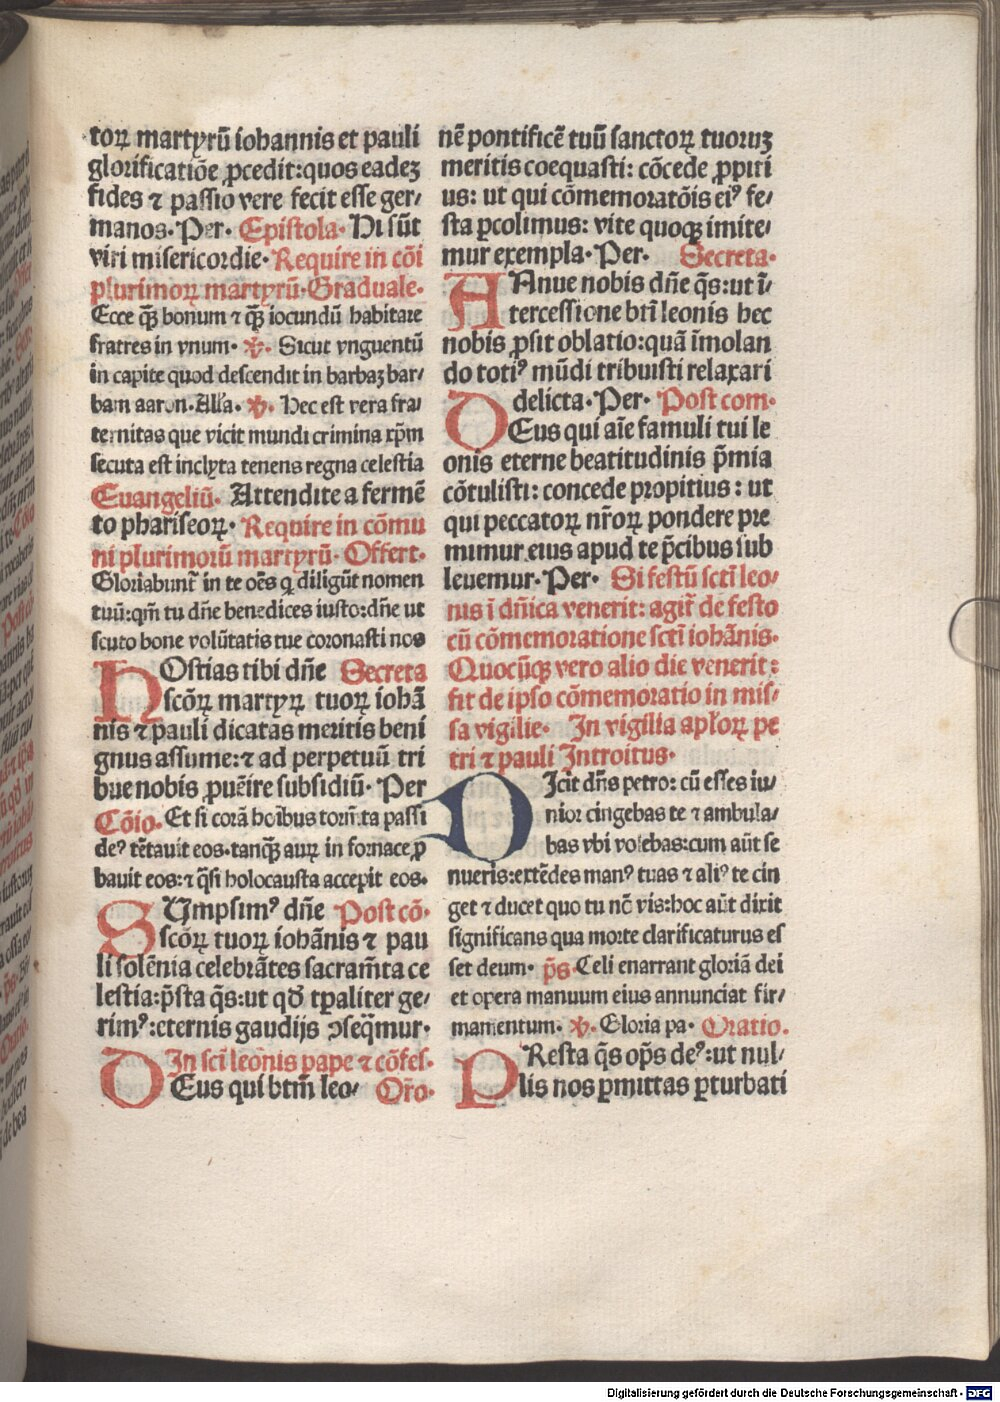 toꝝ martyrū iohannis et pauli
glorificatiōe ꝓcedit:quos eadeꝫ
fides ⁊ passio vere fecit esse ger⸗
manos. Per. Epistola. Hi sūt
viri misericordie. Require in cōi
plurimoꝝ martyrū. Graduale.
Ecce qꝫ̄ bonum ⁊ qꝫ̄ iocundū habitare
fratres in vnum. ℣. Sicut vnguentū
in capite quod descendit in barbaꝫ bar⸗
bam aaron. Alla. ℣. Hec est vera fra⸗
ternitas que vicit mundi crimina xp̄m
secuta est inclyta tenens regna celestia
Euangeliū. Attendite a fermē
to phariseoꝝ. Require in cōmu
ni plurimorū martyrū. Offert.
Gloriabunt̄ in te oēs q̄ diligūt nomen
tuū:qm̄ tu dn̄e benedices iusto:dn̄e ut
scuto bone volūtatis tue coronasti nos
HOstias tibi dn̄e Secreta
scōꝝ martyꝝ tuoꝝ iohā
nis ⁊ pauli dicatas meritis beni
gnus assume:⁊ ad perpetuū tri
bue nobis ꝓuēire subsidiū. Per
Cōio. Et si corā hoībus torm̄ta passi
deꝰ tētauit eos.tanqꝫ̄ auꝝ in fornace ꝓ
bauit eos:⁊ q̄si holocausta accepit eos.
SUmpsimꝰ dn̄e Post cō.
scōꝝ tuoꝝ iohānis ⁊ pau
li solēnia celebrātes sacram̄ta ce
lestia:p̄sta q̄s:ut qd̄ tp̄aliter ge⸗
rimꝰ:eternis gaudijs ꝯseq̄mur.
In sci leonis pape ⁊ cōfes.
DEus qui btm̄ leo⸗ Or̄o.
nē pontificē tuū sanctoꝝ tuoruꝫ
meritis coequasti: cōcede ꝓpiti
us: ut qui cōmemoratōis eiꝰ fe⸗
sta ꝑcolimus: vite quoqꝫ imite⸗
mur exempla. Per. Secreta.
ANnue nobis dn̄e q̄s:ut ī⸗
tercessione bti leonis hec
nobis ꝓsit oblatio:quā īmolan
do totiꝰ mūdi tribuisti relaxari
delicta. Per. Post com.
DEus qui aīe famuli tui le
onis eterne beatitudinis p̄mia
cōtulisti: concede propitius: ut
qui peccatoꝝ nr̄oꝝ pondere pre
mimur eius apud te p̄cibus sub
leuemur. Per. Si festū scti leo⸗
nis ī dn̄ica venerit: agit̄ de festo
cū cōmemoratione scti iohānis.
Quocūqꝫ vero alio die venerit:
fit de ipso cōmemoratio in mis⸗
sa vigilie. In vigilia apl̄oꝝ pe
tri ⁊ pauli Introitus.
DIcit dn̄s petro: cū esses iu⸗
nior cingebas te ⁊ ambula⸗
bas vbi volebas:cum aūt se
nueris:extēdes manꝰ tuas ⁊ aliꝰ te cin
get ⁊ ducet quo tu nō vis:hoc aūt dixit
significans qua morte clarificaturus es
set deum. p̄s. Celi enarrant gloriā dei
et opera manuum eius annunciat fir⸗
mamentum. ℣. Gloria pa. Oratio.
PResta q̄s op̄s deꝰ:ut nul⸗
lis nos ꝑmittas ꝑturbati
Digitalisierung gefördert durch die Deutsche Forschungsgemeinschaft - DFG